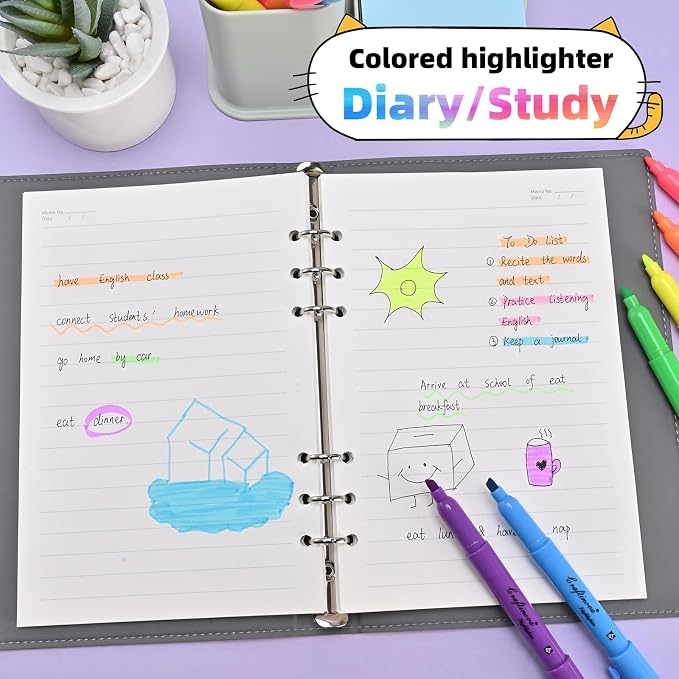 Colored highlighter
Diary/Study
Memo No.
Date / /
have English class
connect students' homework
go home by car
eat dinner.
Memo No.
Date / /
To Do List
① Recite the words
and text
② Pratice listening
English
③ Keep a journal
Arrive at school of eat
breakfast.
eat & nap
Highlighter
Highlighter